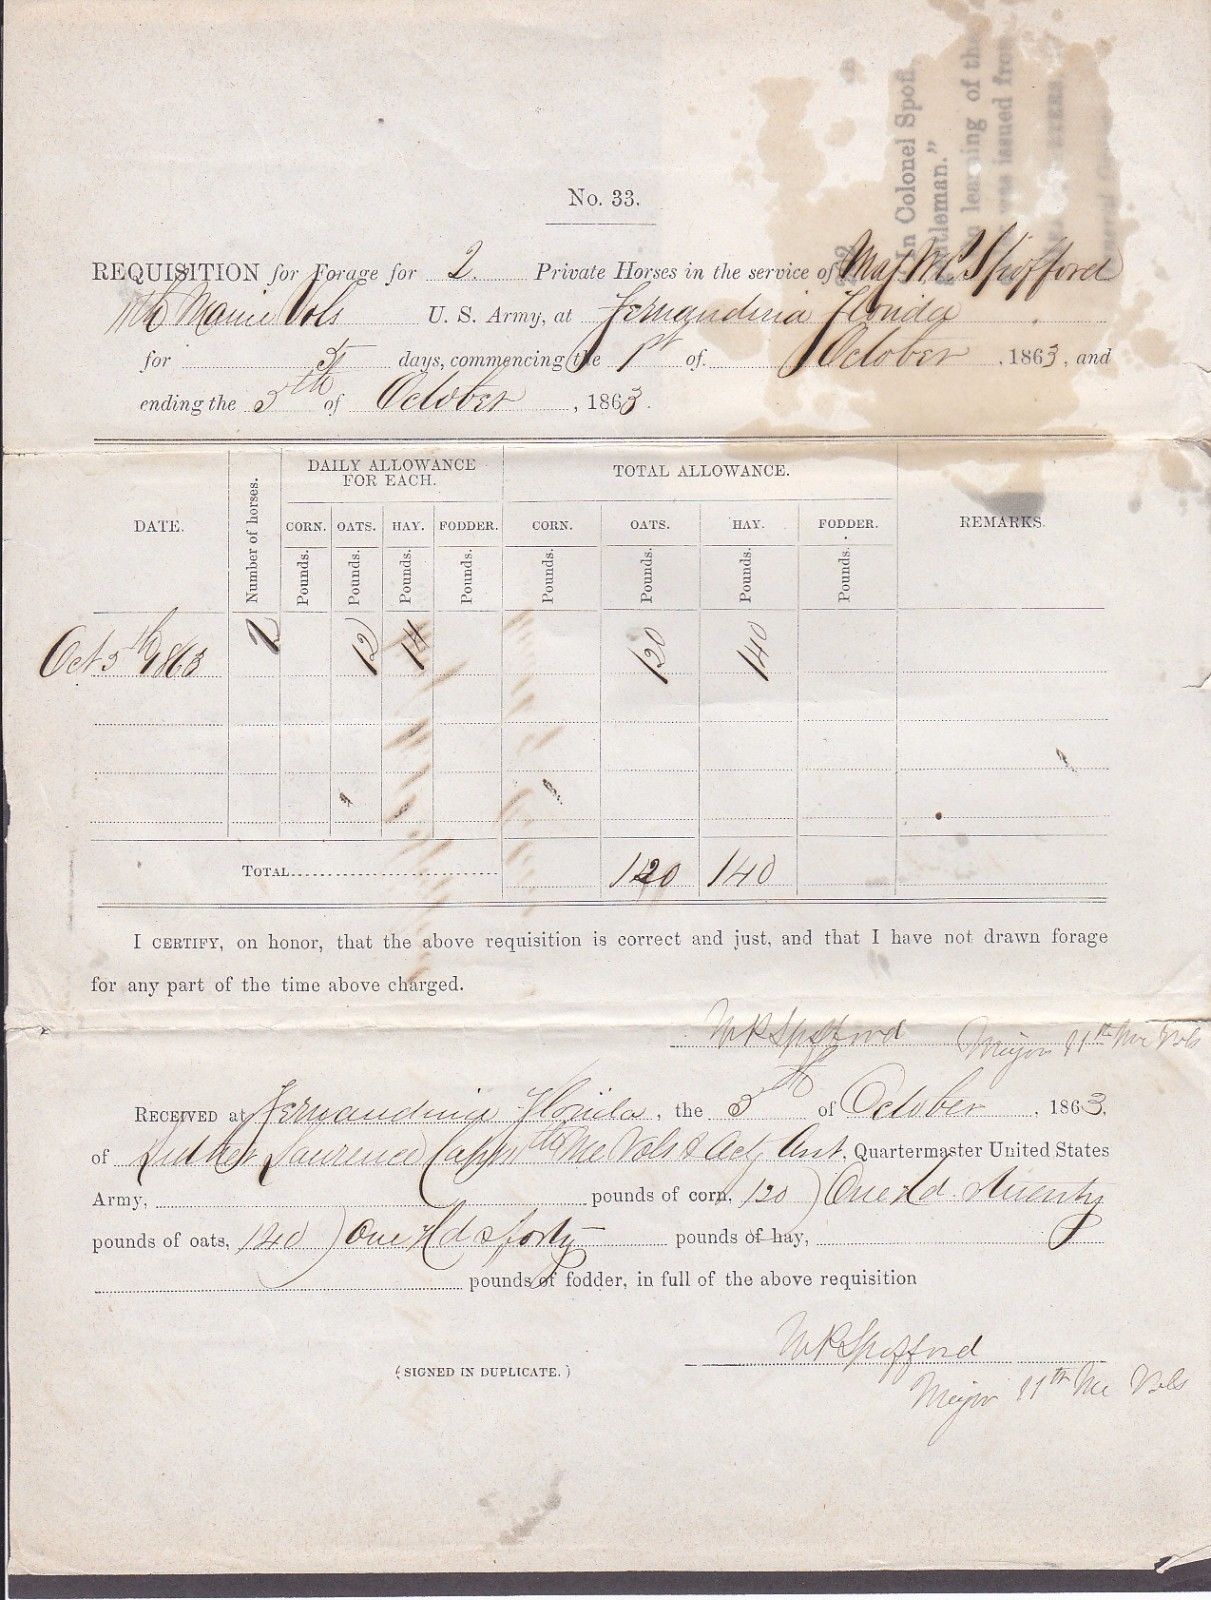 No. 33.
REQUISITION for Forage for 2. Private Horses in the service of Maj W. P. Spofford
11th Maine Vols U. S. Army, at Fernandina Florida
for 5 days, commencing the 1st of October, 1863, and
ending the 5th of October, 1863.
DATE.
Number of horses.
DAILY ALLOWANCE FOR EACH.
TOTAL ALLOWANCE.
REMARKS.
CORN. OATS. HAY. FODDER. CORN. OATS. HAY. FODDER.
Pounds. Pounds. Pounds. Pounds. Pounds. Pounds. Pounds. Pounds.
Oct 5th 1863 2 12 14 120 140
TOTAL 120 140
I CERTIFY, on honor, that the above requisition is correct and just, and that I have not drawn forage
for any part of the time above charged.
W P Spofford Major 11th Me Vols
RECEIVED at Fernandina Florida, the 5th of October, 1863,
of Luther Laurence Capt 11th Me Vols & Act Asst, Quartermaster United States
Army, pounds of corn, 120) One Hd & twenty
pounds of oats, 140) One Hd & forty pounds of hay,
pounds of fodder, in full of the above requisition
W P Spofford
(SIGNED IN DUPLICATE.)
Major 11th Me Vols
Colonel
learning of the
was issued from